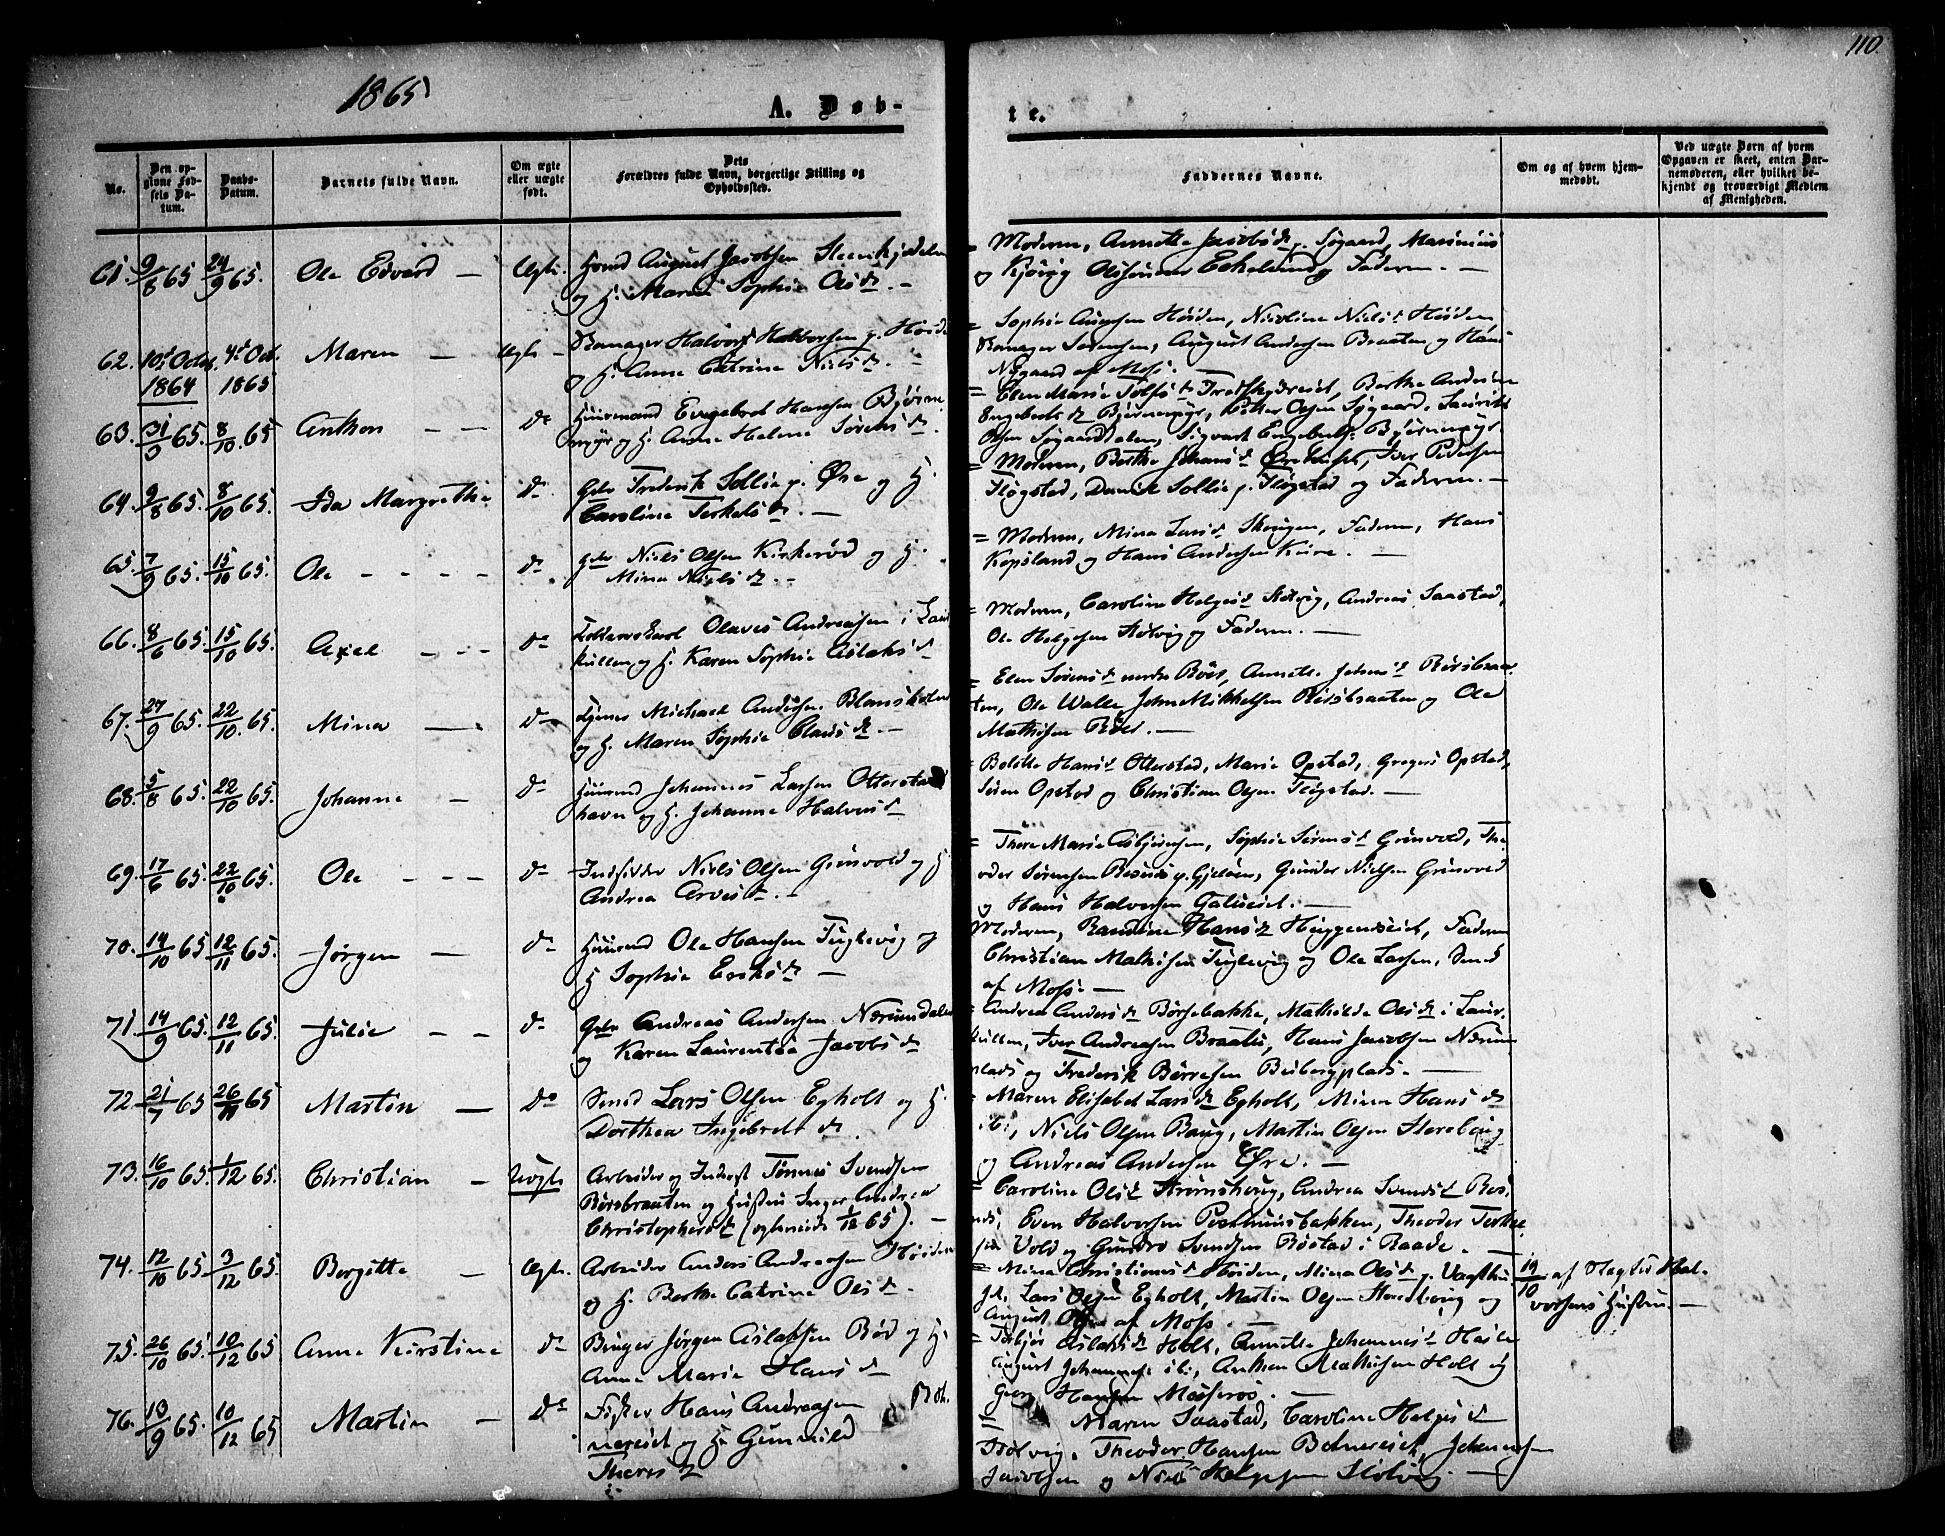 110.
1865
A. Døb-
te.
No.
Den op-
givne Fød-
sels Da-
tum.
Daabs-
Datum.
Barnets fulde Navn.
Om ægte
eller uægte
født.
Dets
Forældres fulde Navn, borgerlige Stilling og
Opholdssted.
Faddernes Navne.
Om og af hvem hjem-
medøbt.
Ved uægte Børn af hvem
Opgaven er skeet, enten Bar-
nemoderen, eller hvilket be-
kjendt og troværdigt Medlem
af Menigheden.
61. 9/8 65. 24/9 65. Ole Edvard — Ægte. August Jacobsen
og H. Maren Sophie Olsd. —
= Moderen, Annette Jacobsd. p. Søgaard, Marinius
og Faderen. —
62. 10de Octbr. 4de Oct. Maren — Ægte — Halvor Halvorsen p. Høiden
1864 1865 og H. Anne Catrine Nielsd.
= Sophie Høiden, Nicoline Nielsd. Høiden
Sørensen, August Andersen Braaten og Hans
Nygaard af Moss.
63. 31/9 65. 8/10 65 Anthon — — do Huusmand Engebret Hansen Bjørne
myr og H. Anne Helene Sørensd.
= Elen Marie Tolfsd. Berthe Andrine
Engebretsd. Bjørnemyr, Petter Olsen Søgaard, Lauritz
Olsen Søgaarddalen, Sigvart Engebrets. Bjørnemyr
64. 9/8 65. 8/10 65. Ida Margrethe do Gbr Frederik Sollie p. Øre og H.
Caroline Terkelsd. —
= Moderen, Berthe Johansd. Iver Pedersen
Fløgstad, Sollie p. Fløgstad og Faderen. —
65. 7/9 65. 15/10 65. Ole — — — do Gbr Niels Olsen Kirkerød og H.
Mina Nielsd. —
= Moderen, Mina Larsd. Skougen, Faderen, Hans
Kopsland og Hans Andersen Kure. —
66. 8/6 65. 15/10 65. Axel — — do Olaves Andreasen i Laur
kullen og H. Karen Sophie Aslaksd.
= Moderen, Caroline Helgesd. Stølvig, Andreas Saastad,
Ole Helgesen Stølvig og Faderen. —
67. 27/9 65. 22/10 65. Mina — do Michael Andersen
og H. Maren Sophie Clausd. —
= Elen Sørensd. nedre Røes, Annette Johnsd. Rørsbraa-
ten, Ole Walle John Mikkelsen Rørsbraaten og Ole
Mathisen Røes. —
68. 5/8 65. 22/10 65. Johanne — do Johannes Larsen Otterstad
havn og H. Johanne Halvorsd.
= Bolette Hansd. Otterstad, Marie Opstad, Gregers Opstad,
Søren Opstad og Christian Olsen Fløgstad. —
69. 17/6 65. 22/10 65. Ole — — — do Inderster Niels Olsen Grønvold og H.
Andrea Arvesd. —
= Thore Marie Asbjørnsen, Sophie Sørensd. Grønvold, The-
odor Sørensen p. Gjeløen, Gunder Nielsen Grønvold
og Hans Halvorsen
70. 14/10 65 12/11 65. Jørgen — do Ole Hansen Fuglevig og
H. Sophie Eriksd. —
Moderen, Randine Hansd. Huggeneseiet, Faderen
Christian Mathisen Fuglevig og Ole Larsen, Smed
af Moss. —
71. 14/9 65. 12/11 65. Julie — — do Gbr Andreas Andersen Nærumdalen
og Karen Laurentsa Jacobsd.
= Andrea Andersd. Børsebakke, Mathilde Olsd. i Laur-
kullen, Iver Andreasen Braaten, Hans Jacobsen Nærum
plads og Frederik Børresen Bibergplads. —
72. 21/7 65 26/11 65 Martin — do Smed Lars Olsen Egholt og H.
Dorthea Ingebretsd.
= Maren Elisabet Larsd. Egholt, Mina Hansd.
ibi, Niels Olsen Baug, Martin Olsen
og Andreas Andersen Øre. —
73. 16/10 65. 1/12 65. Christian — Uægte Arbeider og Inderst Tønnes Svendsen
Rørsbraaten og Hustru Inger Andrea
Christophersd. (ægteviede 1/12 65). —
= Caroline Olsd. Andrea Svendsd.
Even Halvorsen Theodor
Vold og Gunder Svendsen Røstad i Raade. —
74. 12/10 65. 3/12 65. Bergitte — Ægte. Arbeider Anders Andreasen Høiden
og H. Berthe Catrine Olsd. —
= Mina Christiansd. Høiden, Mina Olsd. p.
Lars Olsen Egholt, Martin Olsen og
August af Moss. —
19/10 af Hal-
vorsens Hustru. —
75. 26/10 65. 10/12 65 Anne Kirstine do Bruger Jørgen Aslaksen Bød og H.
Anne Marie Hansd.
= Aslaksd. Holt, Annette Johannesd. Hasle
August Johannes. ibi, Anthon Mathisen Holt og
Georg Hansen Mosseros. —
76. 13/9 65. 10/12 65 Martin — do Fisker Hans Andreasen Bot-
nereiet og H. Gunnild
Thoresd.
= Maren Saastad, Caroline Helgesd.
Stølvig, Theodor Hansen Botnereiet, Johannes
Jacobsen og Niels Helgesen Stølvig. —